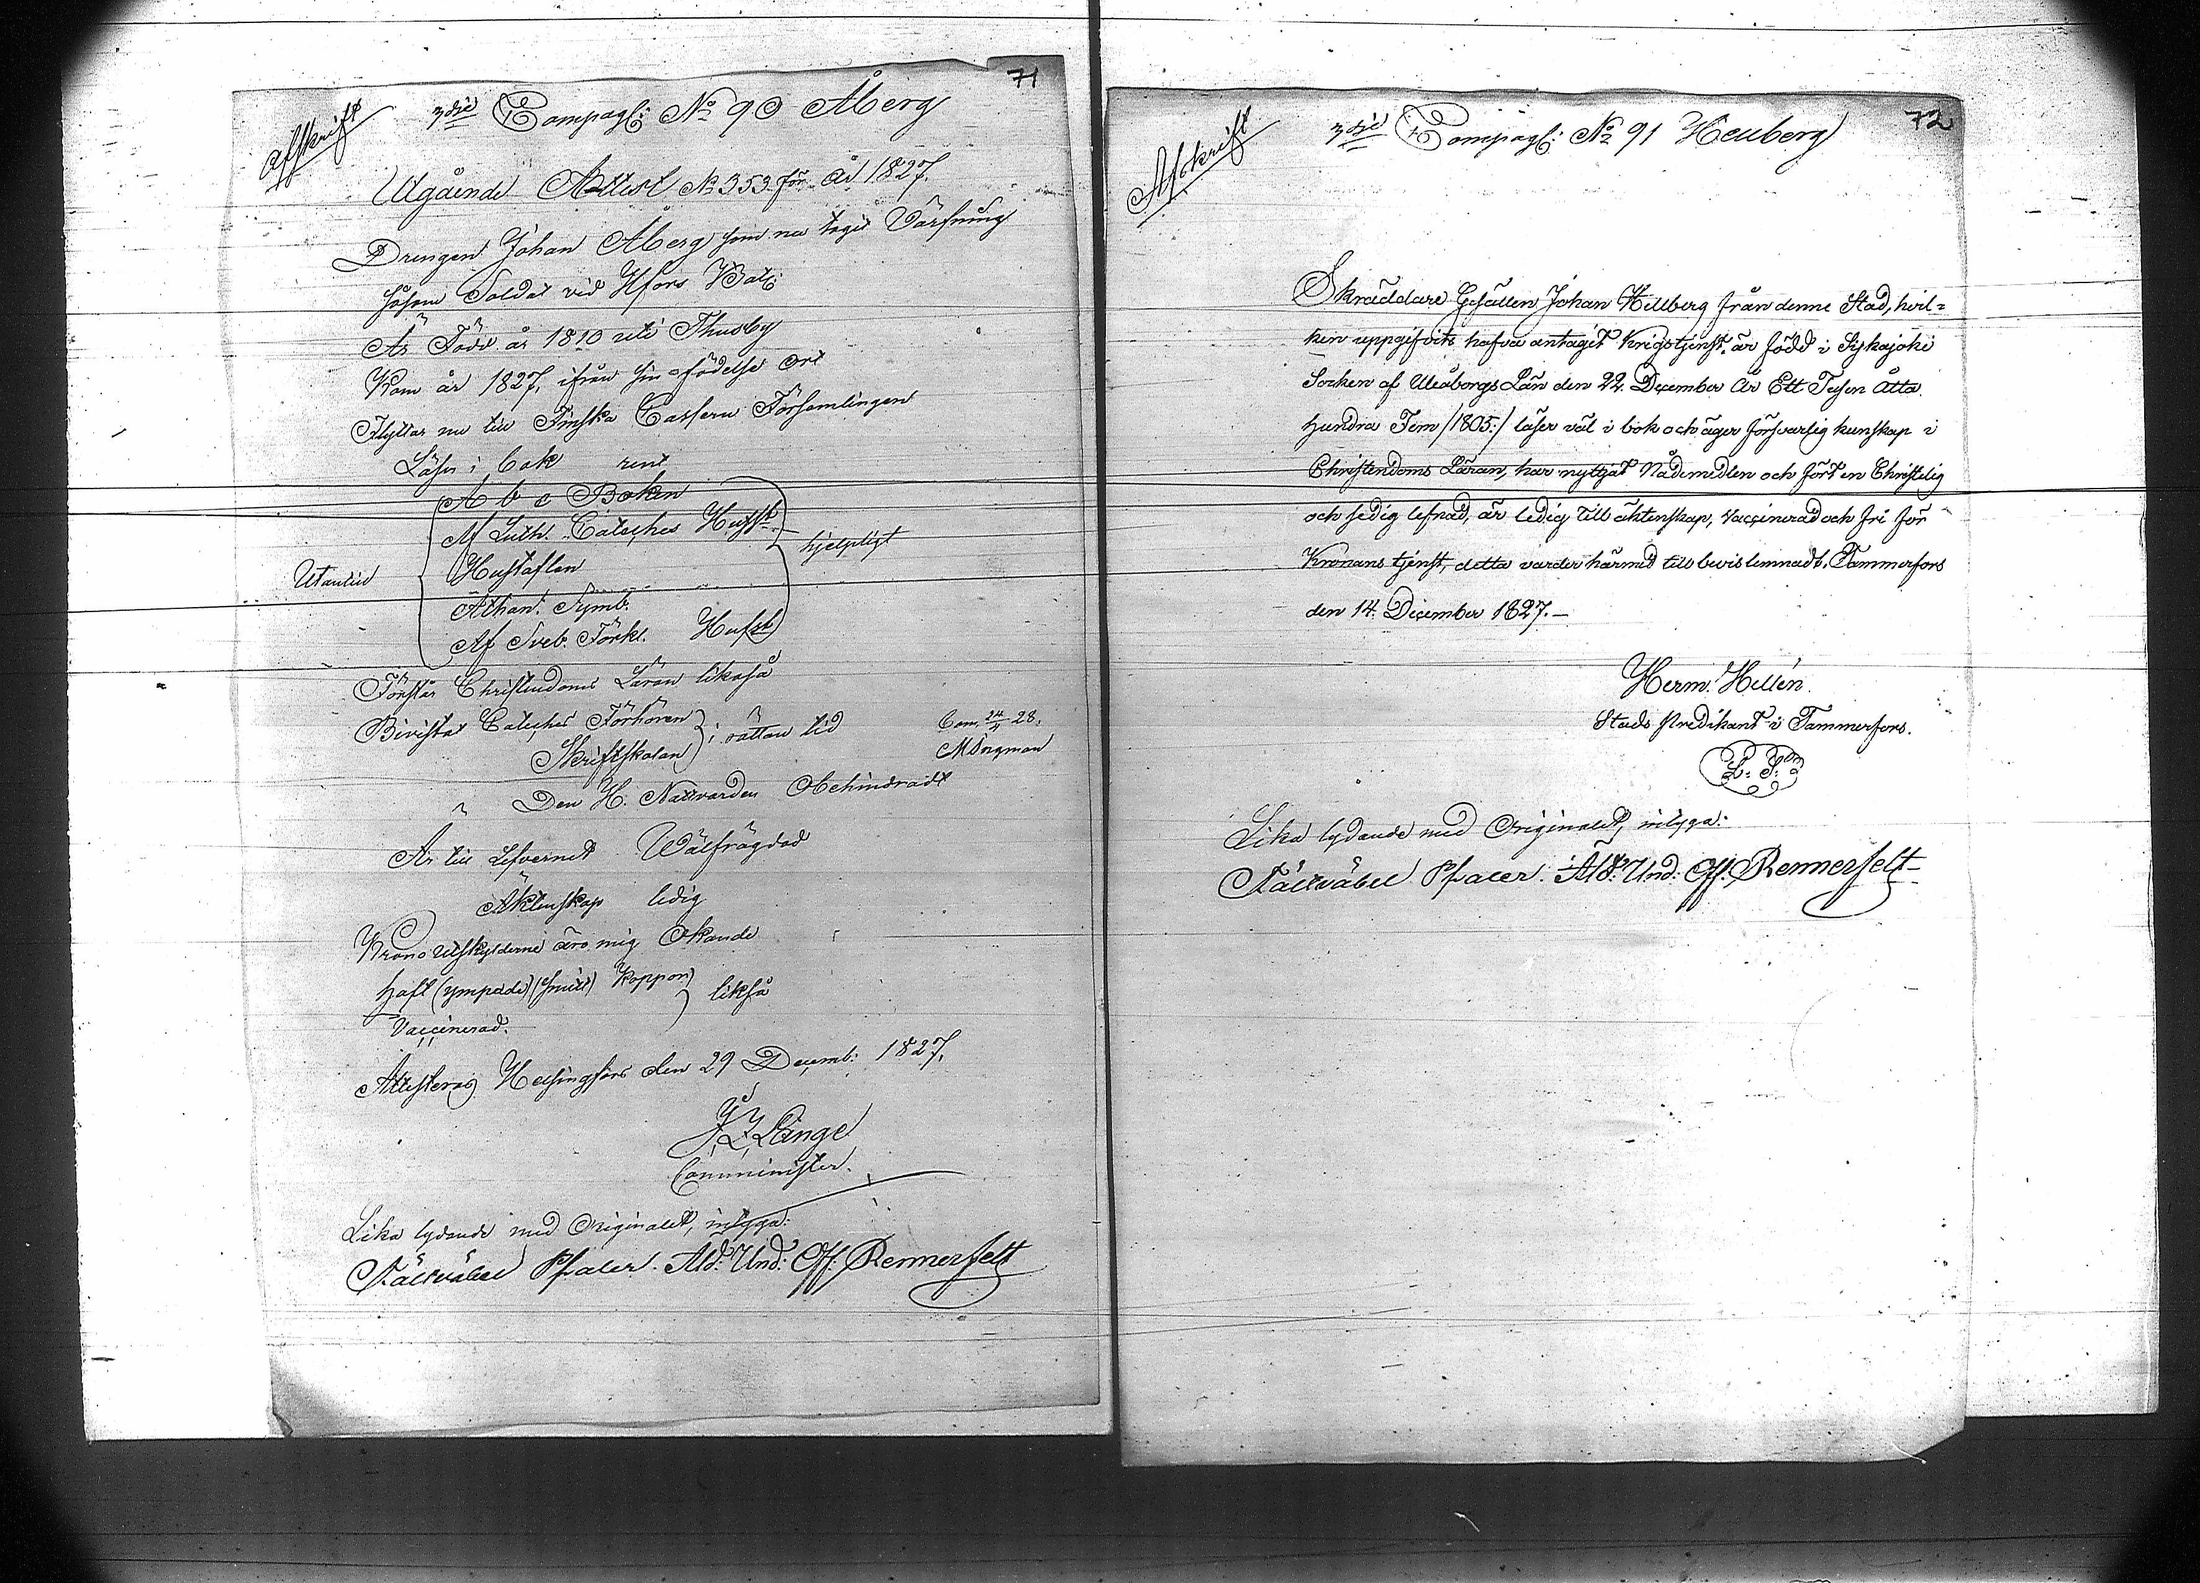 71
Afskrift
3die Compagl: No 90 Åberg
Utgående Attest No 353 för år 1827.
Drengen Johan Åberg som nu tagit Värfning
såsom Soldat vid Hfors Batl:
Är Född år 1810 uti Thusby
Kom år 1827, ifrån sin födelse ort
Flyttar nu till Finska Casern Församlingen
Läser i bok rent
Utantill
A b c Boken
Af Luth. Cateches Hufst.
Hustaflan
Athan. Symb.
Af Sveb. Förkl. Hufst.
hjelpligt
Förstår Christendoms Läran likaså
Bivistat Catechet Förhören
Skriftskolan
i rättan tid
Com. 24/4 28.
M Forsman
Den H. Nattvarden Obehindradt
Är till Lefvernet Wälfrägdad
Äktenskap ledig
Krono Utskylderne äro mig Okände
Haft (ympade) (små) Koppor
Vaccinerad.
likså
Attesteras Helsingfors den 29 Decemb: 1827.
Långe
Comminister.
Lika lydande med Originalet, intyga:
Fältväbel Pfaler. Åld: Und: Off: Rennerfelt
72
Afskrift
3die Compagl: No 91 Hellberg
Skräddare Gesällen Johan Hillberg från denne Stad, hvil=
ken uppgifvits hafva antagit Krigstjenst, är född i Sijkajoki
Socken af Uleåborgs Län den 22. December År Ett Tusen Åtta
hundra Fem /1805:/ läser väl i bok och äger försvarlig kunskap i
Christendoms Läran, har nyttjat Nådemedlen och fört en Christelig
och sedig lefnad, är ledig till äktenskap, Vaccinerad och fri för
Kronans tjenst, detta varder härmed till bevis lemnadt. Tammerfors
den 14. December 1827.—
Herm. Hellén.
Stads Predikant i Tammerfors.
L. S.
Lika lydande med Originalet, intyga:
Fältväbel Pfaler. Åld: Und: Off: Rennerfelt